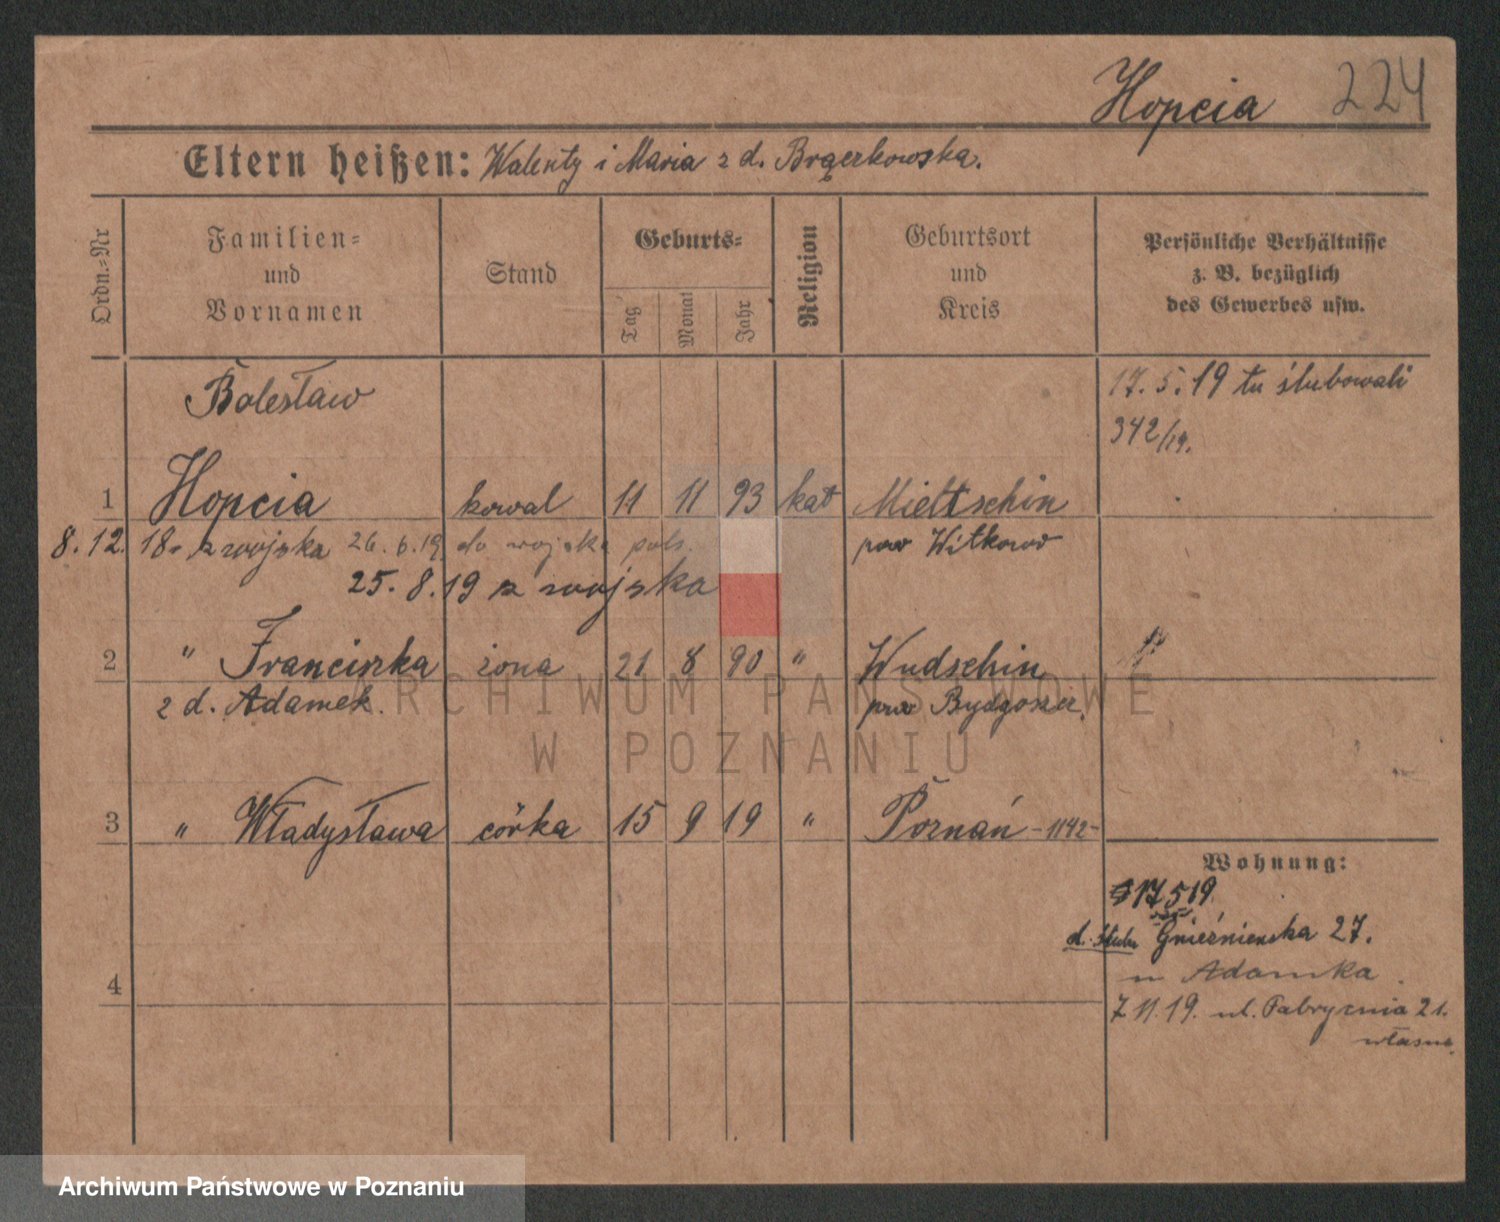 Hopcia 224
Eltern heißen: Walenty i Maria z d. Brączkowska.
Ordn.-Nr
Familien-
und
Vornamen
Stand
Geburts-
Tag
Monat
Jahr
Religion
Geburtsort
und
Kreis
Persönliche Verhältnisse
z. B. bezüglich
des Gewerbes usw.
Bolesław
17.5.19 tu ślubowali
342/19.
1 Hopcia kowal 11 11 93 kat Mieltschin
8.12. 18. z wojska 26.6.19 do wojska pols. pow Witkowo
25.8.19 z wojska
2 " Franciszka żona 21 8 90 " Wudschin
z d. Adamek. pow Bydgoszcz.
ARCHIWUM PAŃSTWOWE
W POZNANIU
3 " Władysława córka 15 9 19 " Poznań -1142-
Wohnung:
17 5 19.
Gnieźnienska 27.
4 u Adamka
7 11.19. ul. Fabryczna 21.
własne.
Archiwum Państwowe w Poznaniu